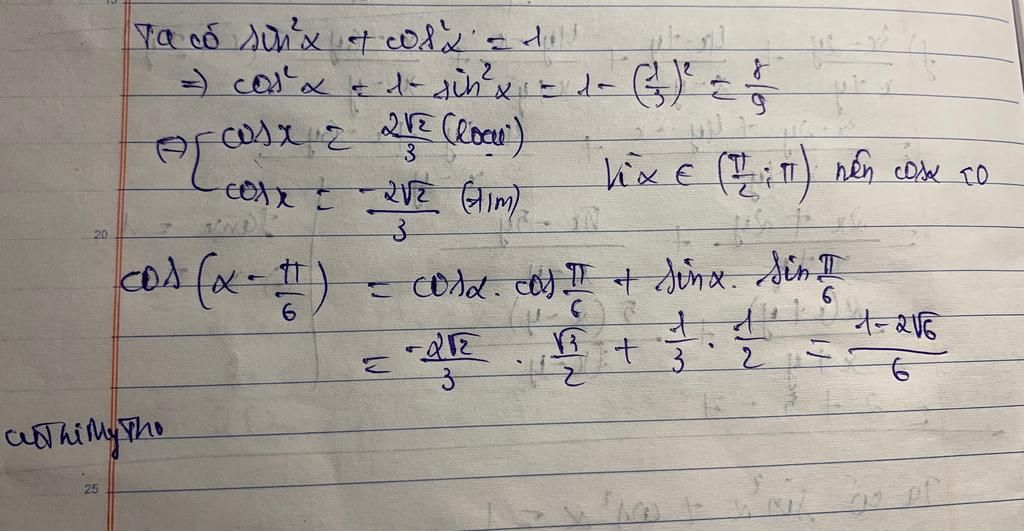 Ta có sin²α + cos²α = 1
⇒ cos²α = 1 - sin²α = 1 - (1/3)² = 8/9
⇔ [ cosx = 2√2/3 (Loại)
cosx = -2√2/3 (t/m) Vì α ∈ (π/2; π) nên cosα <0
20
cos(α - π/6) = cosα. cos π/6 + sinα. sin π/6
= -2√2/3 . √3/2 + 1/3 . 1/2 = 1-2√6/6
25